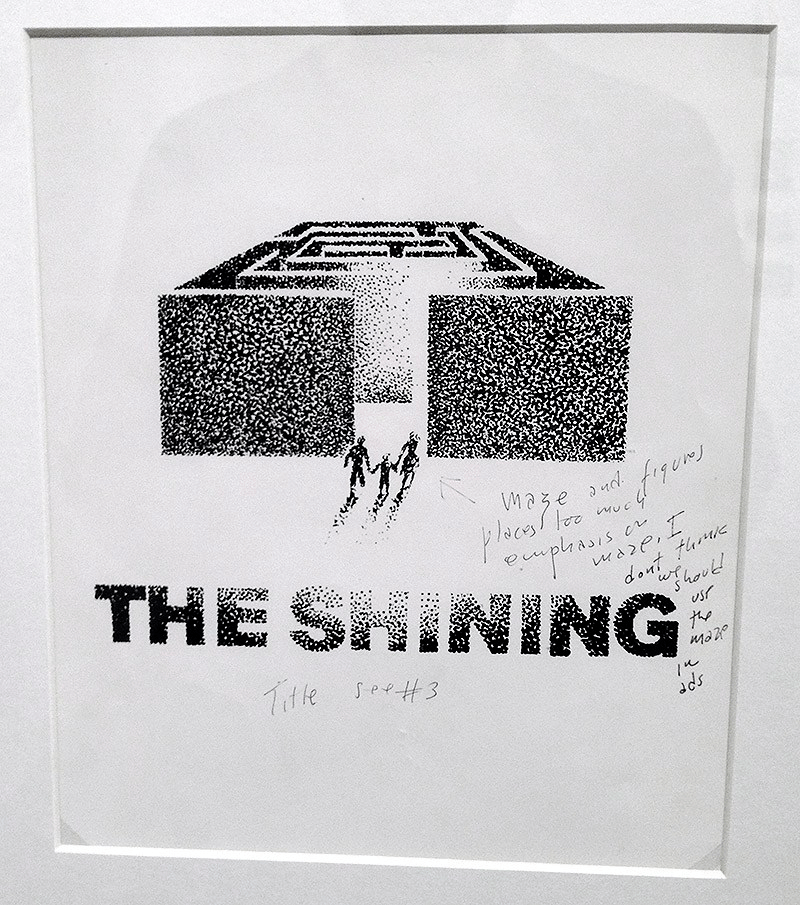 maze and figures
places too much
emphasis on
maze, I
dont think
we should
use
the
maze
in
ads
THE SHINING
Title see #3